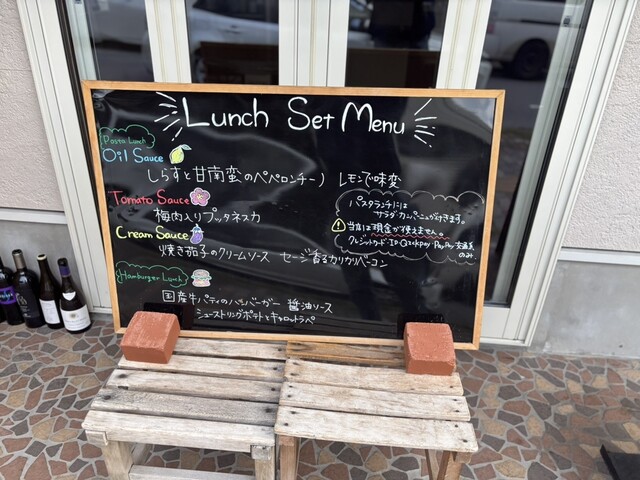 Lunch Set Menu
Pasta Lunch
Oil Sauce
しらすと甘南蛮のペペロンチーノ レモンで味変
Tomato Sauce
梅肉入りプッタネスカ
Cream Sauce
焼き茄子のクリームソース セージ香るカリカリベーコン
パスタランチには
サラダ・カンパーニュが付きます。
当店は現金が使えません。
クレジットカード・ID・Quickpay・PayPay・交通系
のみ
Hamburger Lunch
国産牛パティのハンバーガー 醤油ソース
シューストリングポテトとキャロットラペ